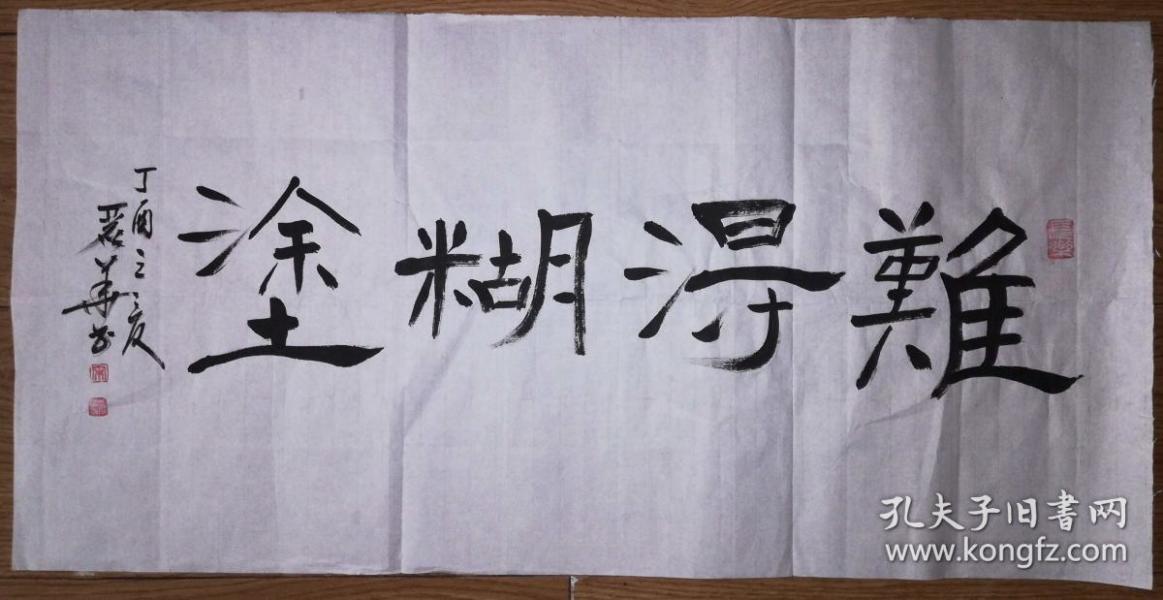 難得糊塗
丁酉之夏
華书
孔夫子旧書网
www.kongfz.com